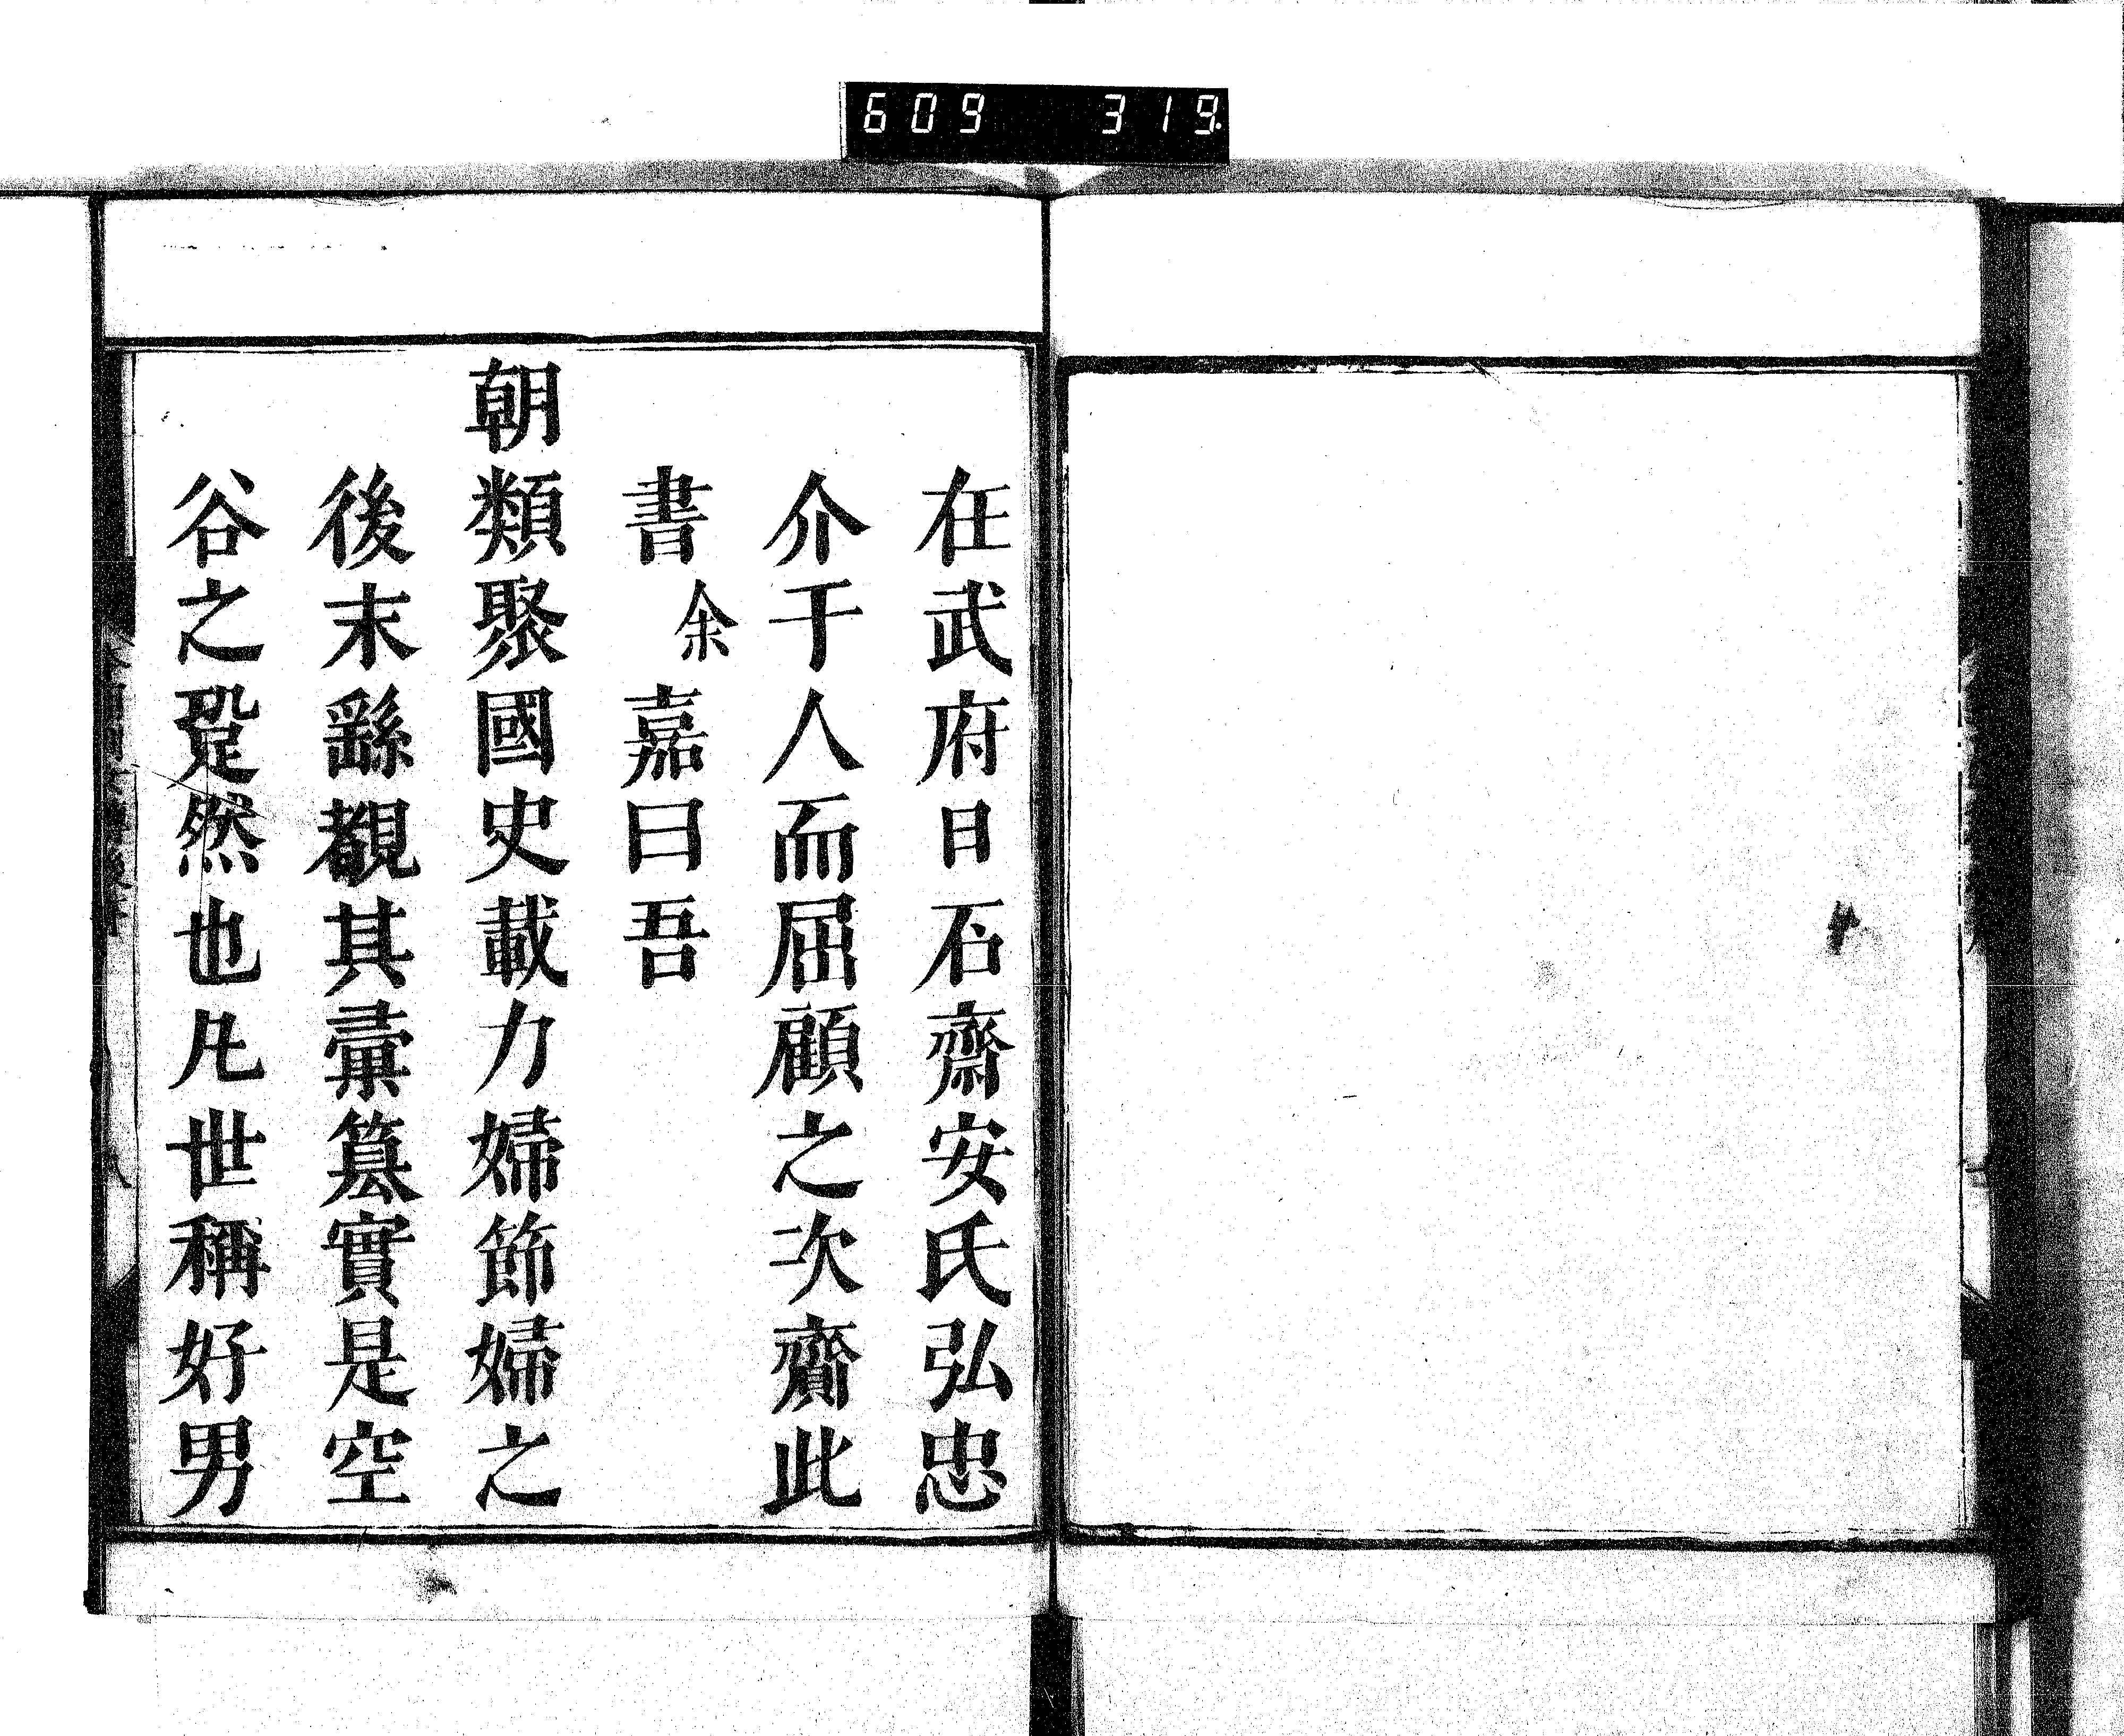 609 319.
在武府日石齋安氏弘忠
介于人而屈顧之次齎此
書余嘉曰吾
朝類聚國史載力婦節婦之
後末繇覩其彙篡實是空
谷之跫然也凡世稱好男